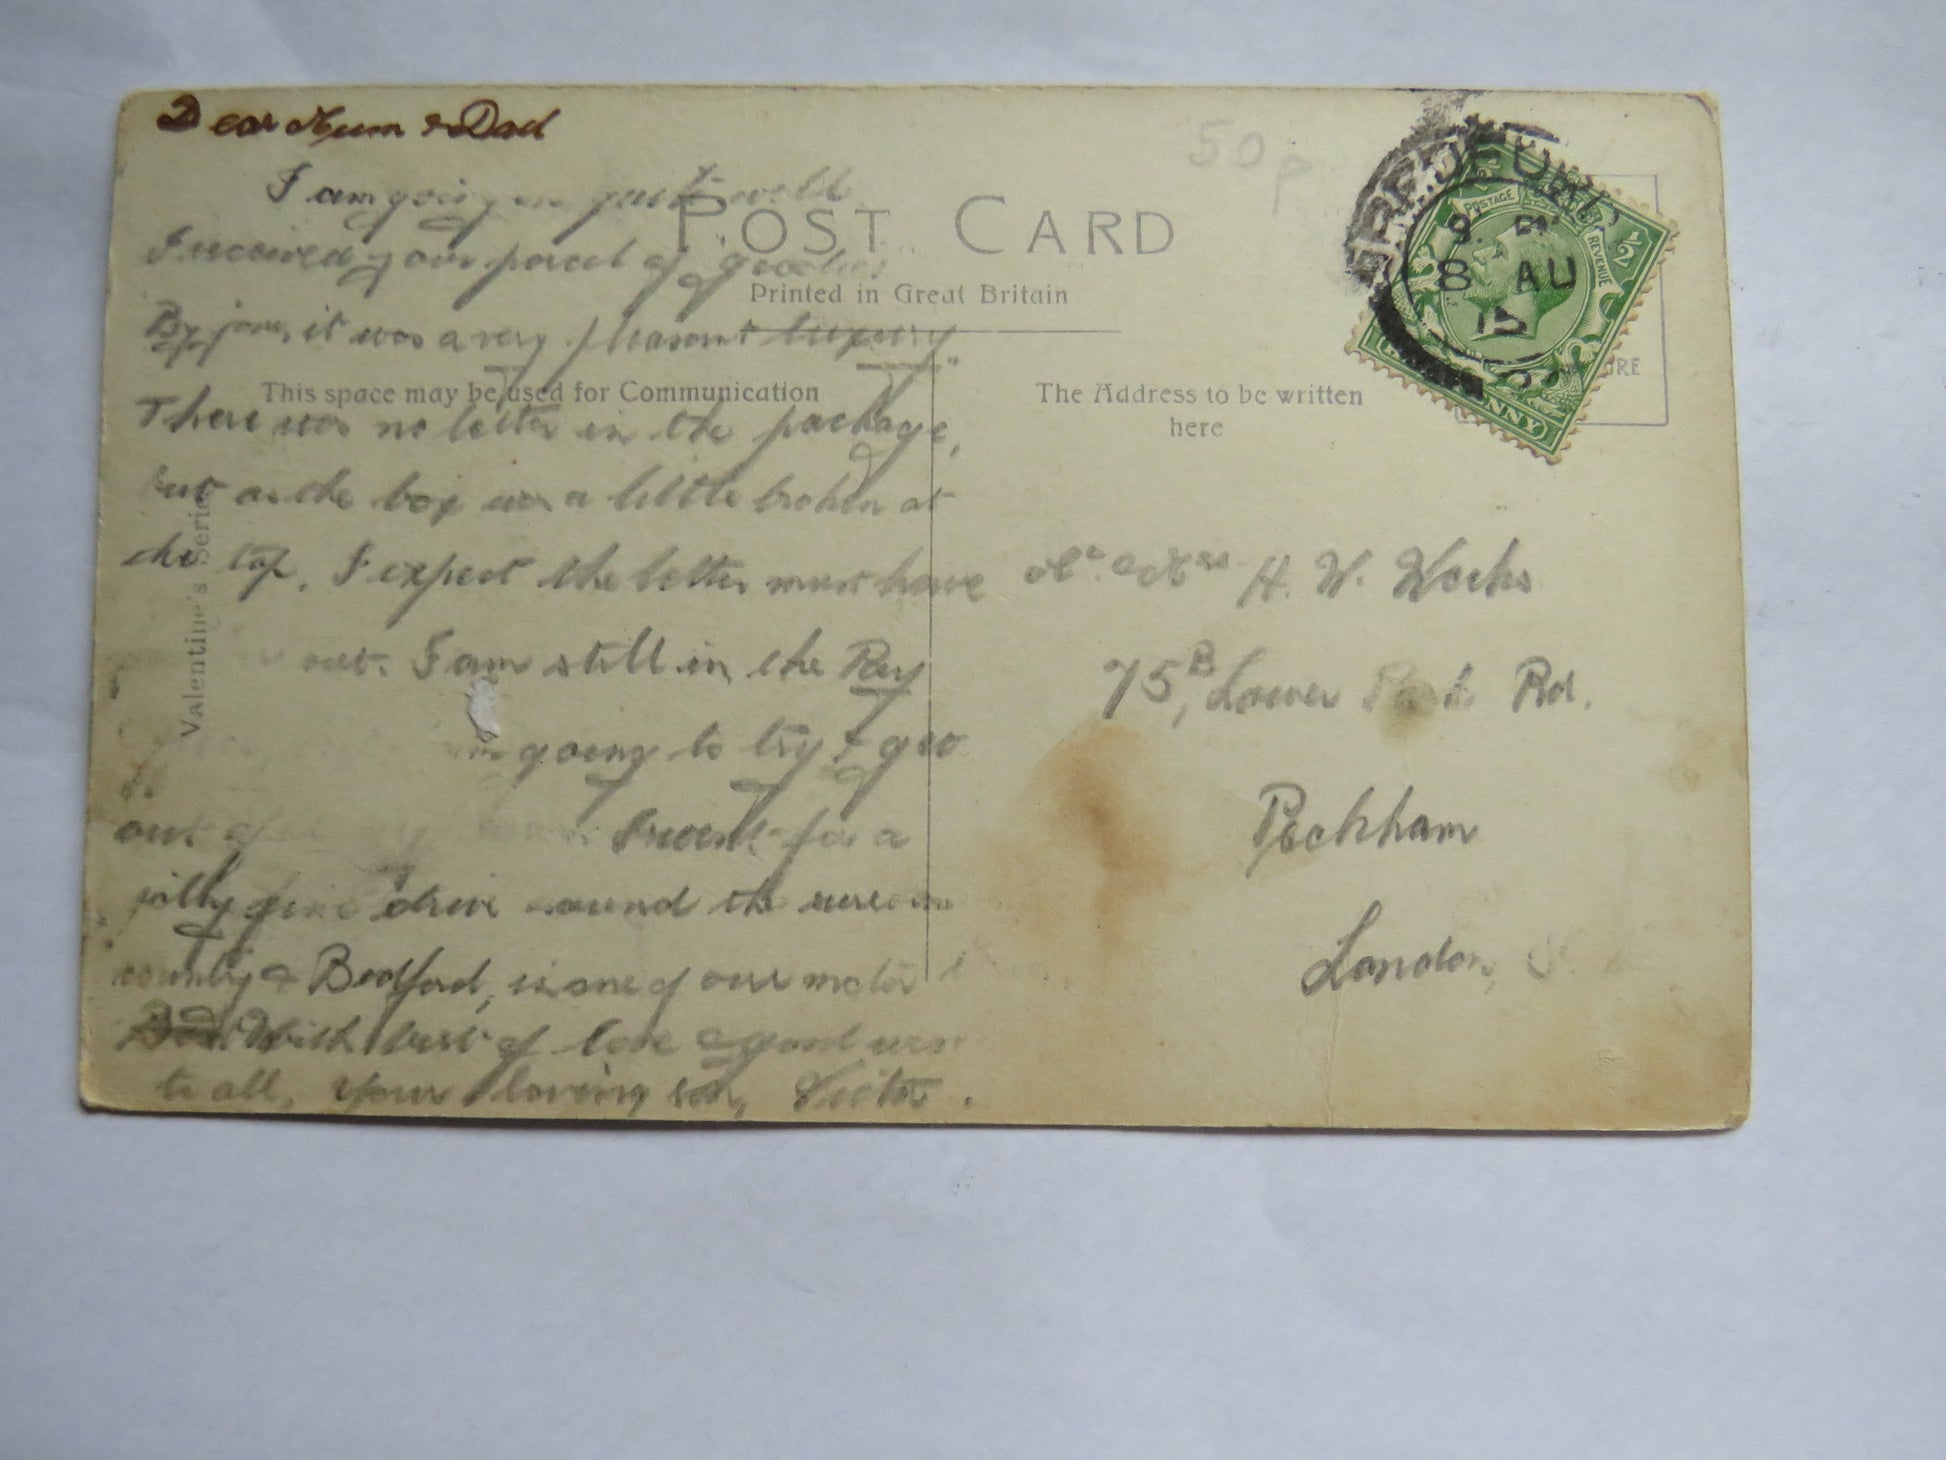 Dear Mum & Dad
I am going on just well
I received your parcel of goodies
By jove, it was a very pleasant luxury
There was no letter in the package,
but as the box was a little broken at
the top, I expect the letter must have
out. I am still in the
going to try & get
out of for a
jolly fine drive around the
county & Bedford, is one of our motor
With best of love & good
to all, Your loving son, Victor.
POST CARD
Printed in Great Britain
This space may be used for Communication
The Address to be written
here
Valentine's Series
50p
BEDFORD
8 AU
15
POSTAGE
REVENUE
1/2
Mr. & Mrs H. W. Weeks
75B, Lower Park Rd.
Peckham
London,